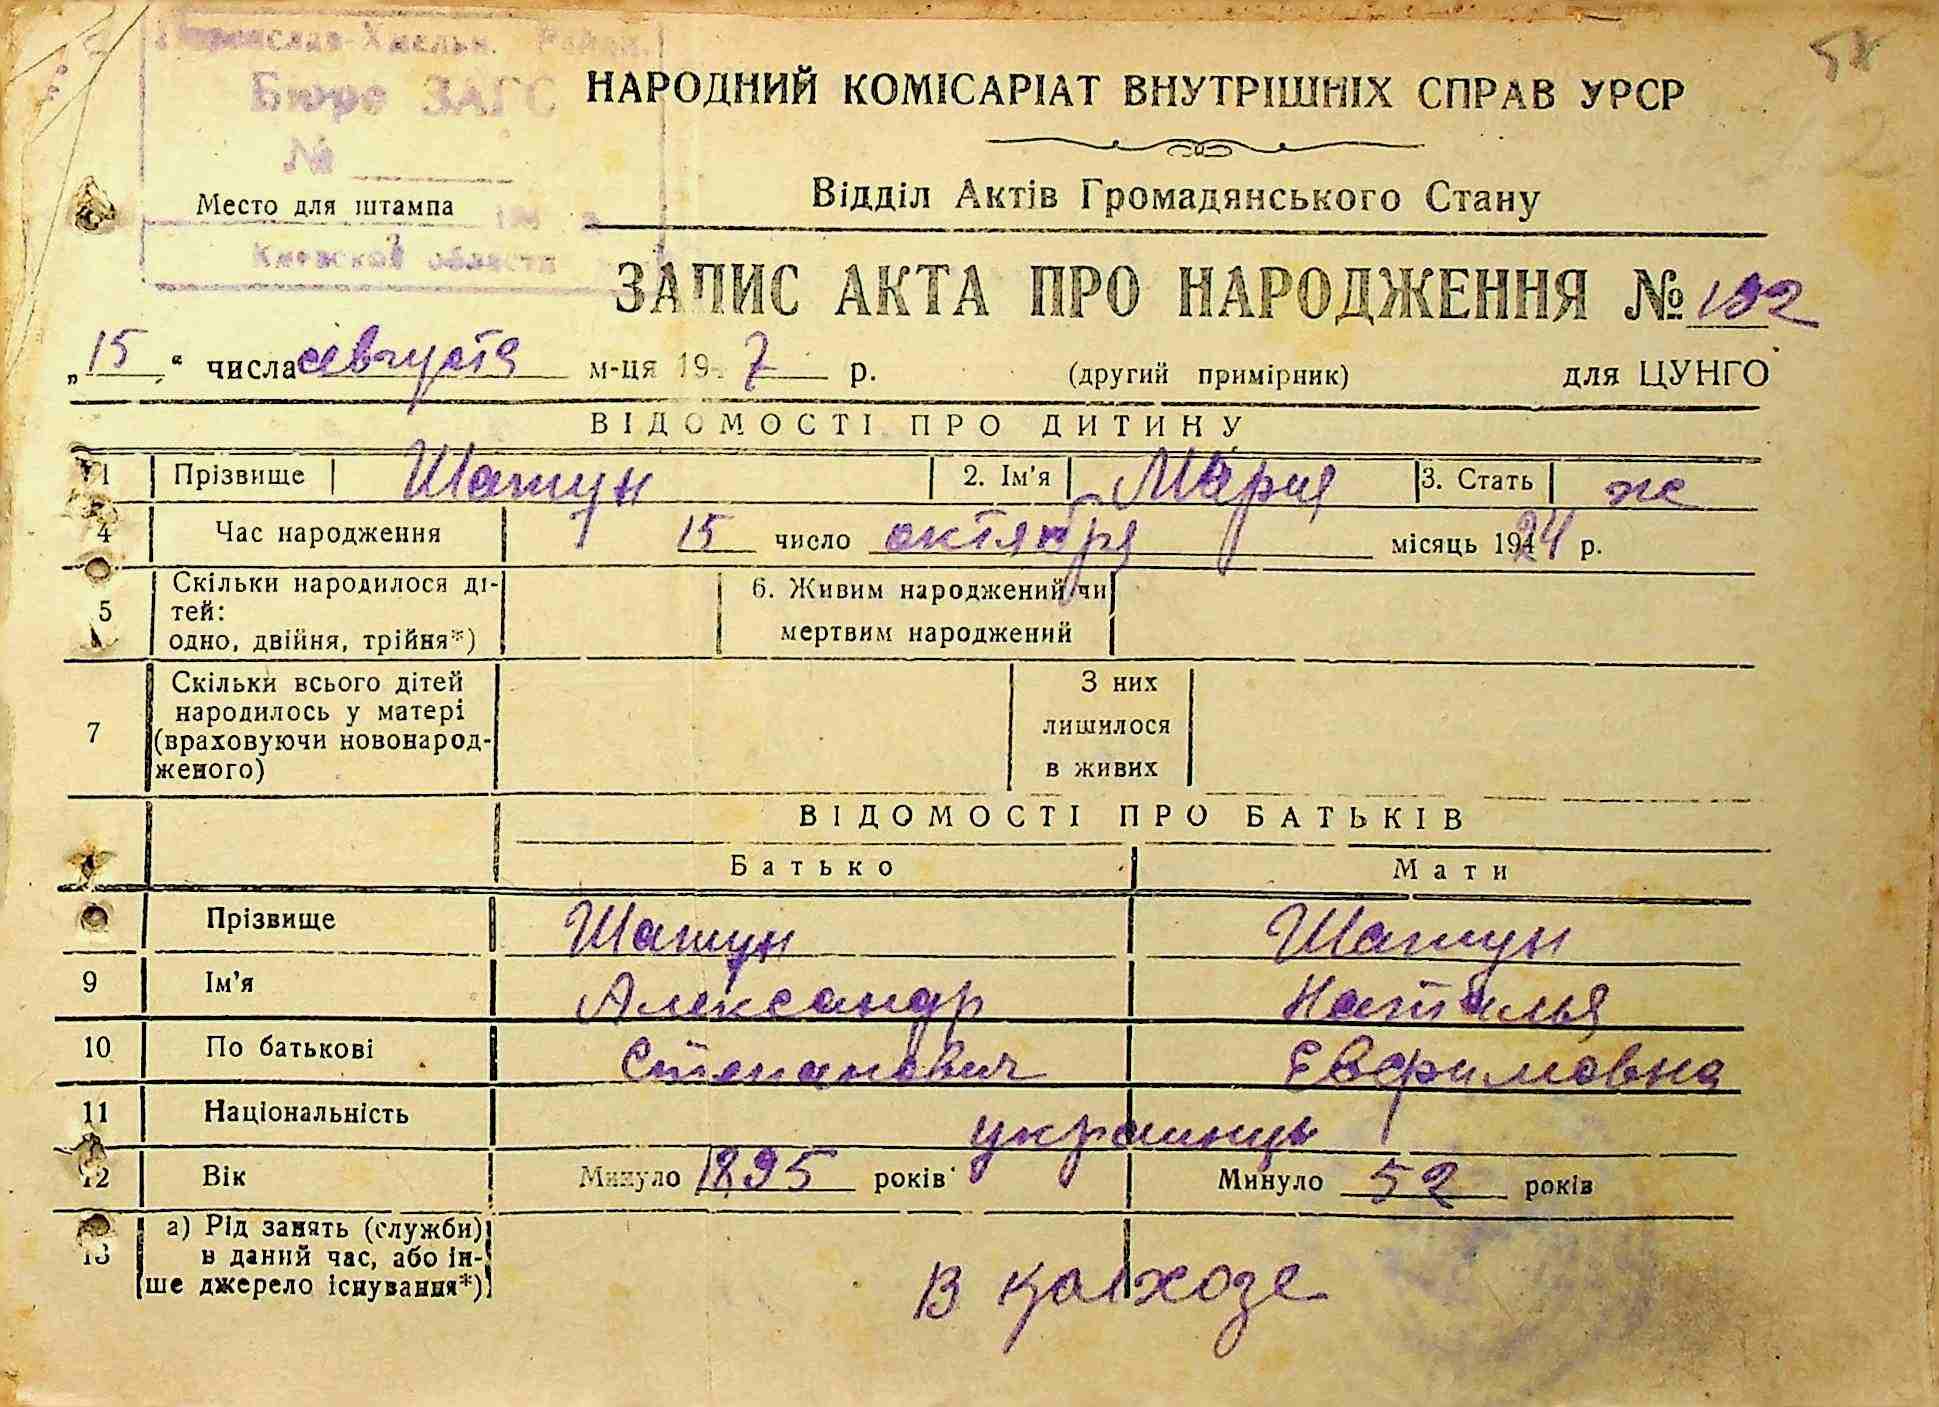 Переяслав-Хмельн. Район.
Бюро ЗАГС
№
Место для штампа
Киевской области
58
НАРОДНИЙ КОМІСАРІАТ ВНУТРІШНІХ СПРАВ УРСР
Відділ Актів Громадянського Стану
ЗАПИС АКТА ПРО НАРОДЖЕННЯ № 192
„15“ числа августа м-ця 19 7 р. (другий примірник) для ЦУНГО
ВІДОМОСТІ ПРО ДИТИНУ
1 Прізвище Шатун 2. Ім'я Мария 3. Стать ж
4 Час народження 15 число октября місяць 1924 р.
5 Скільки народилося ді-
тей:
одно, двійня, трійня*)
6. Живим народжений чи
мертвим народжений
7 Скільки всього дітей
народилось у матері
(враховуючи новонарод-
женого)
З них
лишилося
в живих
ВІДОМОСТІ ПРО БАТЬКІВ
Батько Мати
Прізвище Шатун Шатун
9 Ім'я Александр Наталья
10 По батькові Степанович Евфимовна
11 Національність украинцы
12 Вік Минуло 1895 років Минуло 52 років
13 а) Рід занять (служби)
в даний час, або ін-
ше джерело існування*)
В колхозе